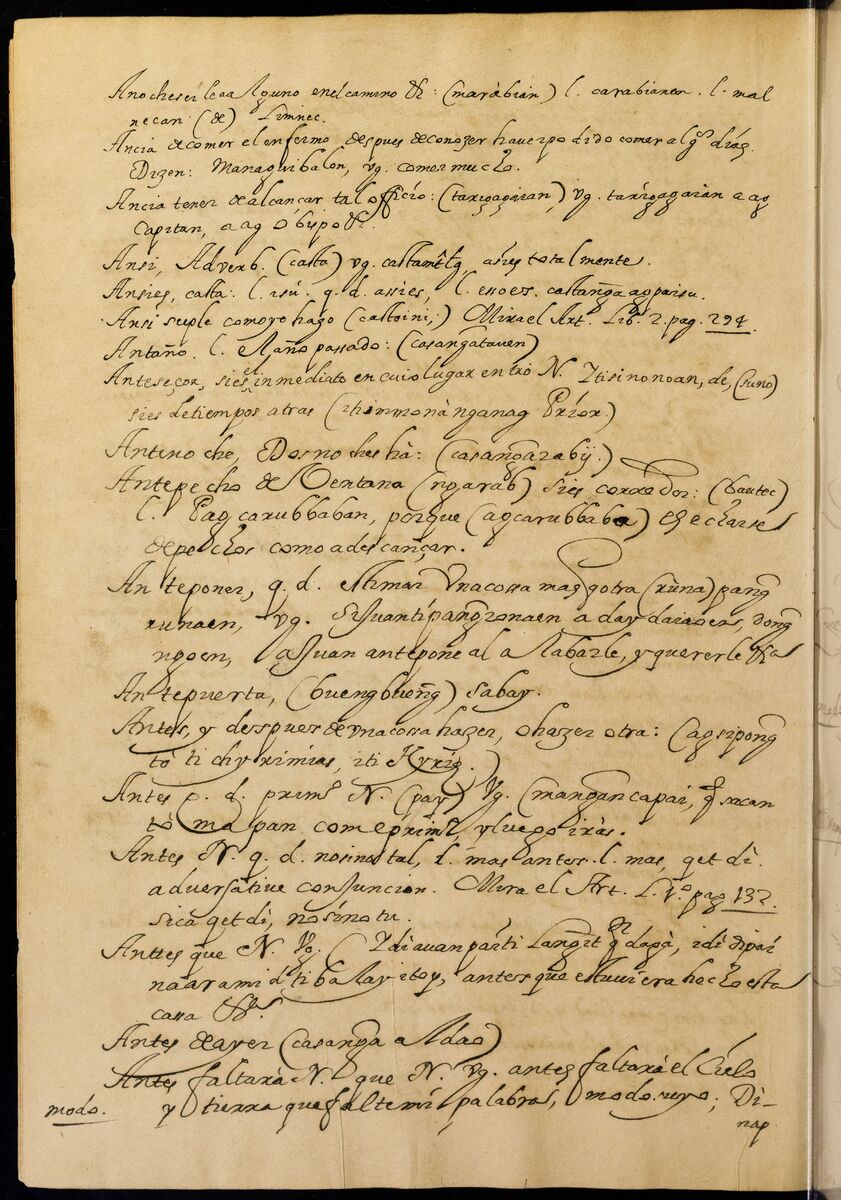 Anochecerle a Alguno en el camino &: (maràbian) l. carabianen. l. mal
necan (de) Limnec.
Ancia de comer el enfermo despues de no haver podido comer algs dias.
Dizen: Managuibalon, vg. comer mucho.
Ancia tener de alcançar tal officio: (tarigagaian) vg. tarigagaian a ag
Capitan, a ag Obispo &.
Ansi, Adverb. (casta) vg. castamet, asi es totalmente.
Ansies, casta. l. isú. q. d. assies, l. esso es. castanga agpaisu.
Ansi suple como yo hago (castoini,) Mira el Art. Lib. 2. pag. 294.
Antaño. l. El año passado: (casangatauen)
Anteseçor, si es el inmediato en cuio lugar entró N. Itisinonoan, de, (suno)
si es de tiempos atras (ithimmonà nganag Prior.)
Antenoche, Dos noches hà: (casangarabij.)
Antepecho de Ventana (ngarab) si es corredor: (bautec)
l. Pagcarubbaban, porque (agcarubbaba) es echarse
de pechos como a descançar.
Anteponer, q. d. estimar Una cossa mas q otra (runa) pang
runaen, vg. Si Juan ti pangronaen a day daiaoen, dong
ngoen, a Juan antepone al alabarle, y quererle &a
Antepuerta, (buengbueng) sabay.
Antes, y despues de una cossa hazer, o hazer otra: (agsipong
tò ti chyrimias, iti Hyrig.)
Antes q. d. primo N. (pay) Vg. (mangan capai, q sacan
tò mapan come primo, y luego iràs.
Antes N. q. d. no sino tal, l. mas antes. l. mas, getdi.
adversative conjuncion. Mira el Art. L. 1.o pag 132.
sica getdi, no sino tu.
Anttes que N. Vg. (Idi auan pai ti Langit q dagà, idi di pai
naaramid ti balay itoy, antes que estuviera hecho esta
casa &a.
Antes de ayer (casanga aldao)
Antes faltarà N. que N. vg. antes faltarà el Cielo
modo. y tierra que faltemi palabras, modo suyo; Di-
nap